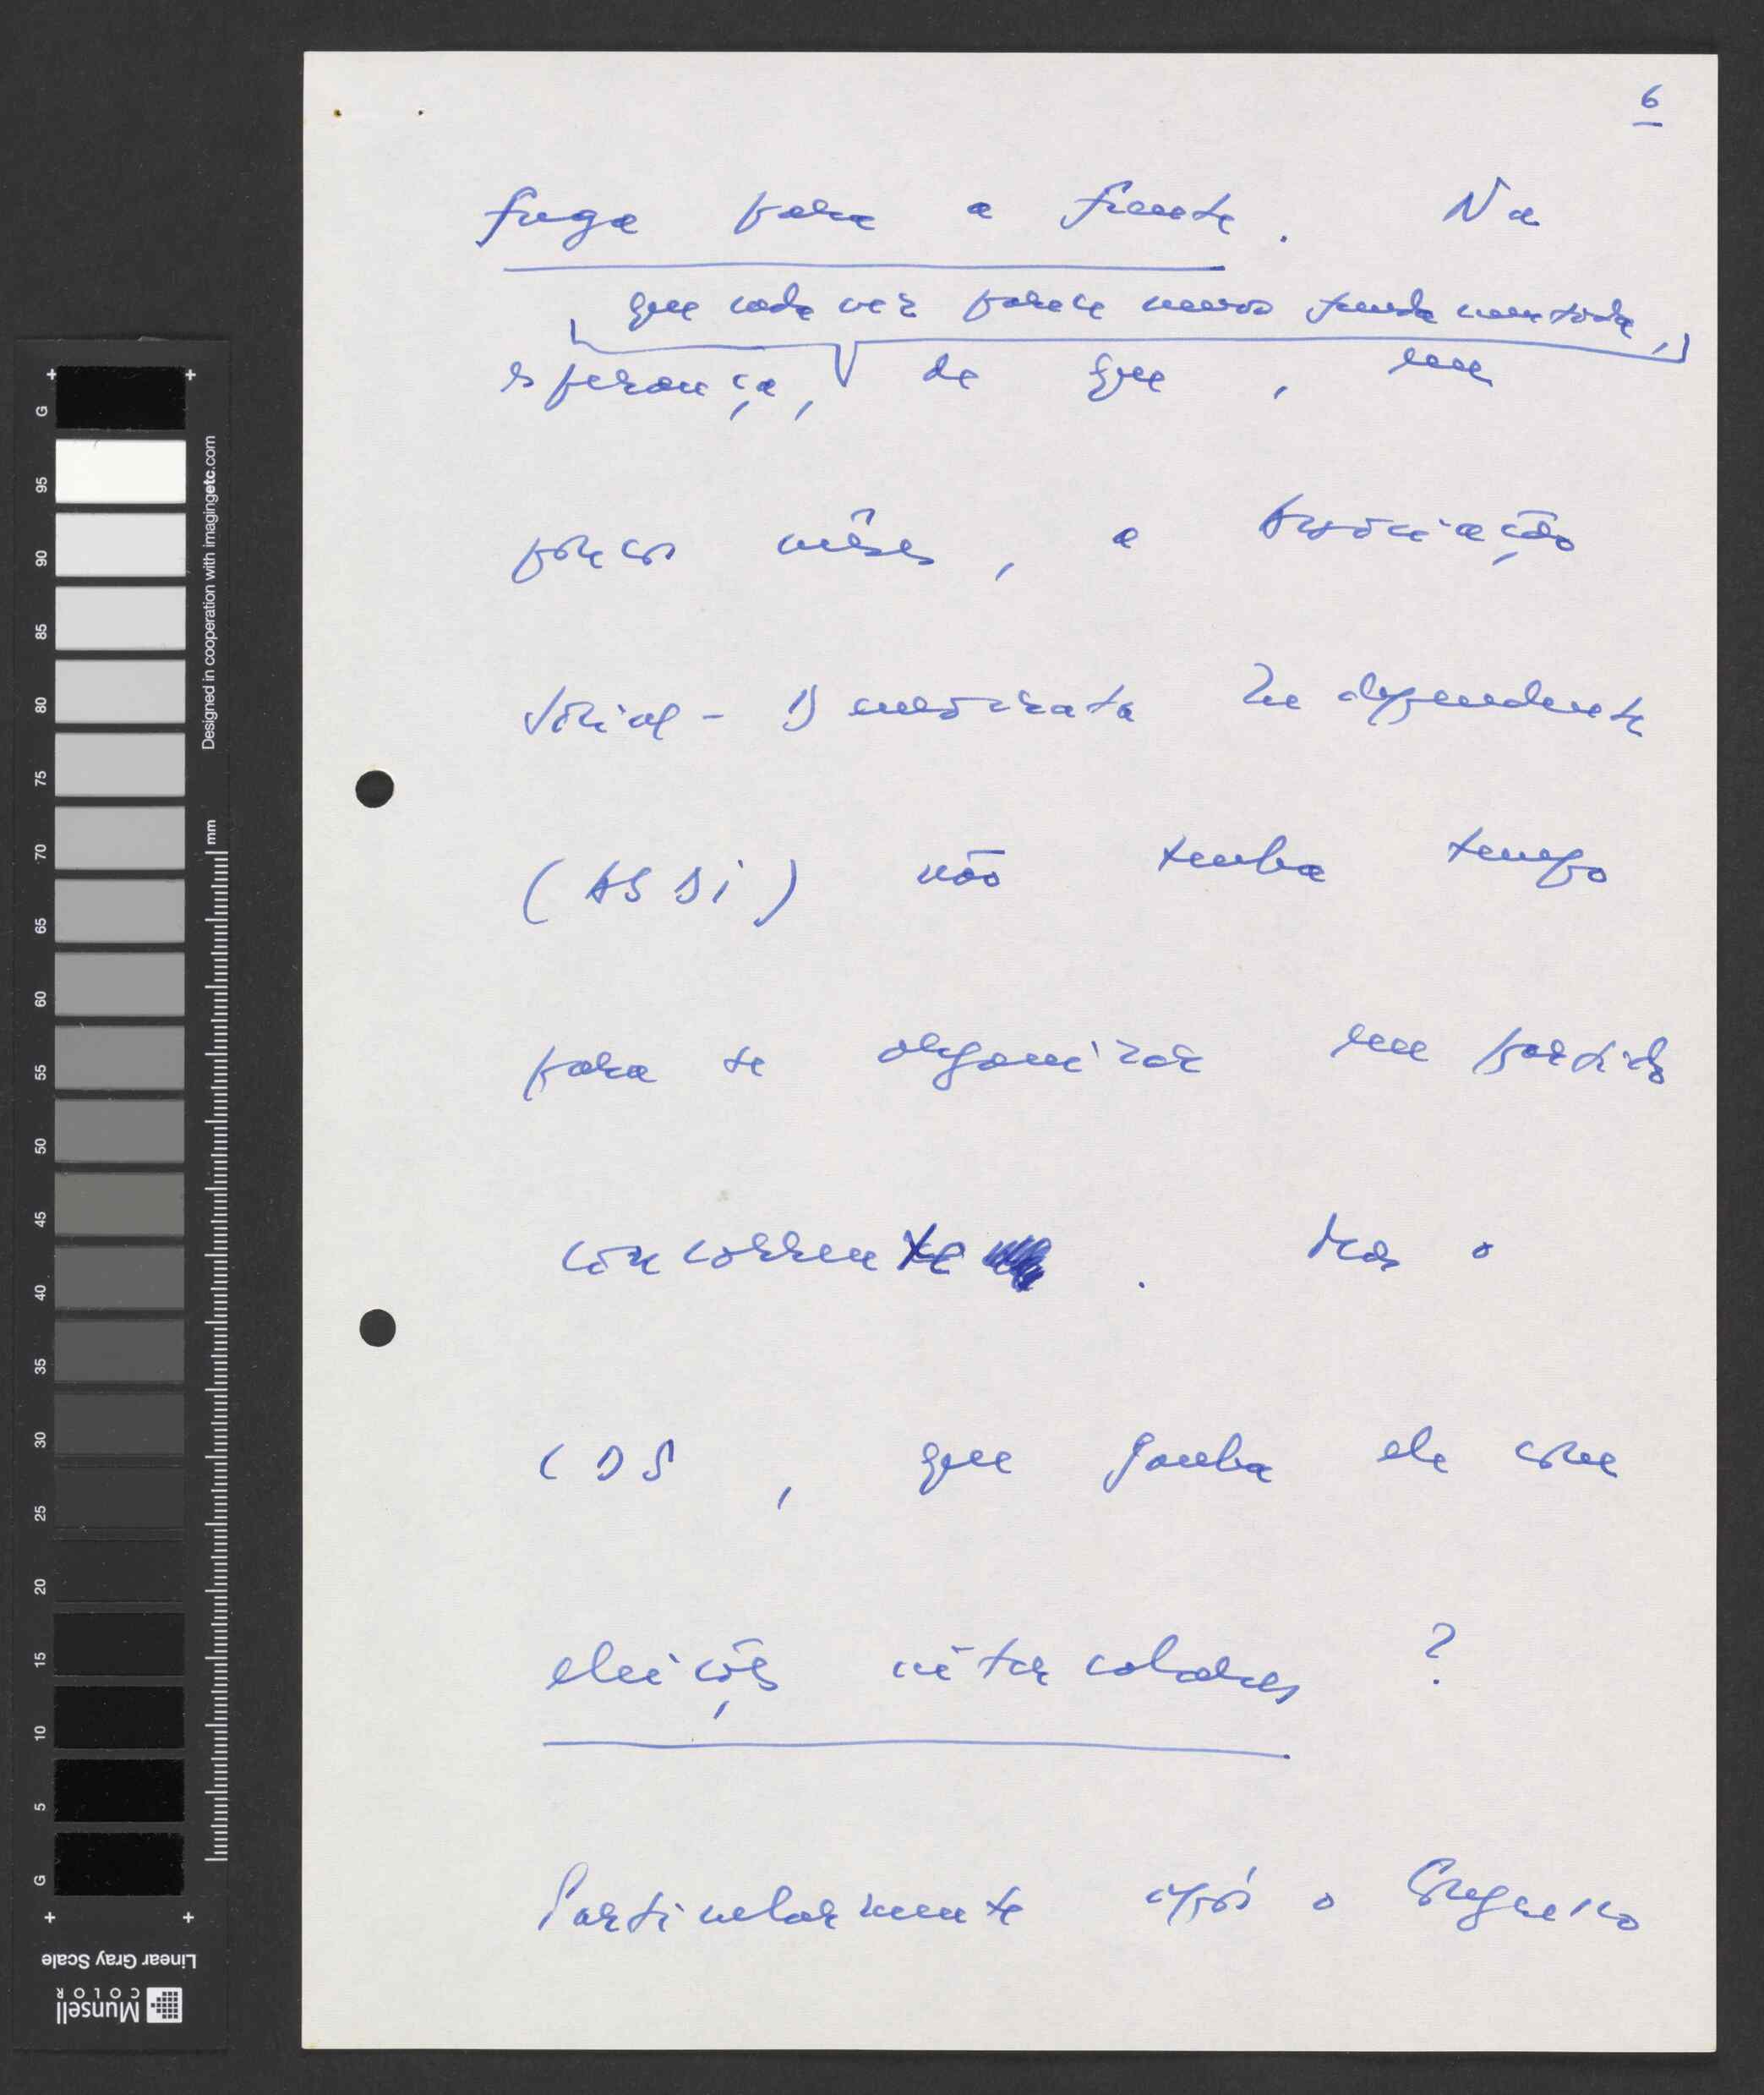 6
fuga para a frente. Na
que cada vez parece menos fundamentada,
esperança, de que, em
poucos mêses, a Associação
Social-Democrata Independente
(ASDI) não tenha tempo
para se organizar em partido
concorrente. Mas o
CDS, que ganha ele com
eleições intercalares?
Particularmente após o Congresso
G
95
90
85
80
75
70
65
60
55
50
45
40
35
30
25
20
15
10
5
G
Designed in cooperation with imagingetc.com
mm
Linear Gray Scale
Munsell
COLOR